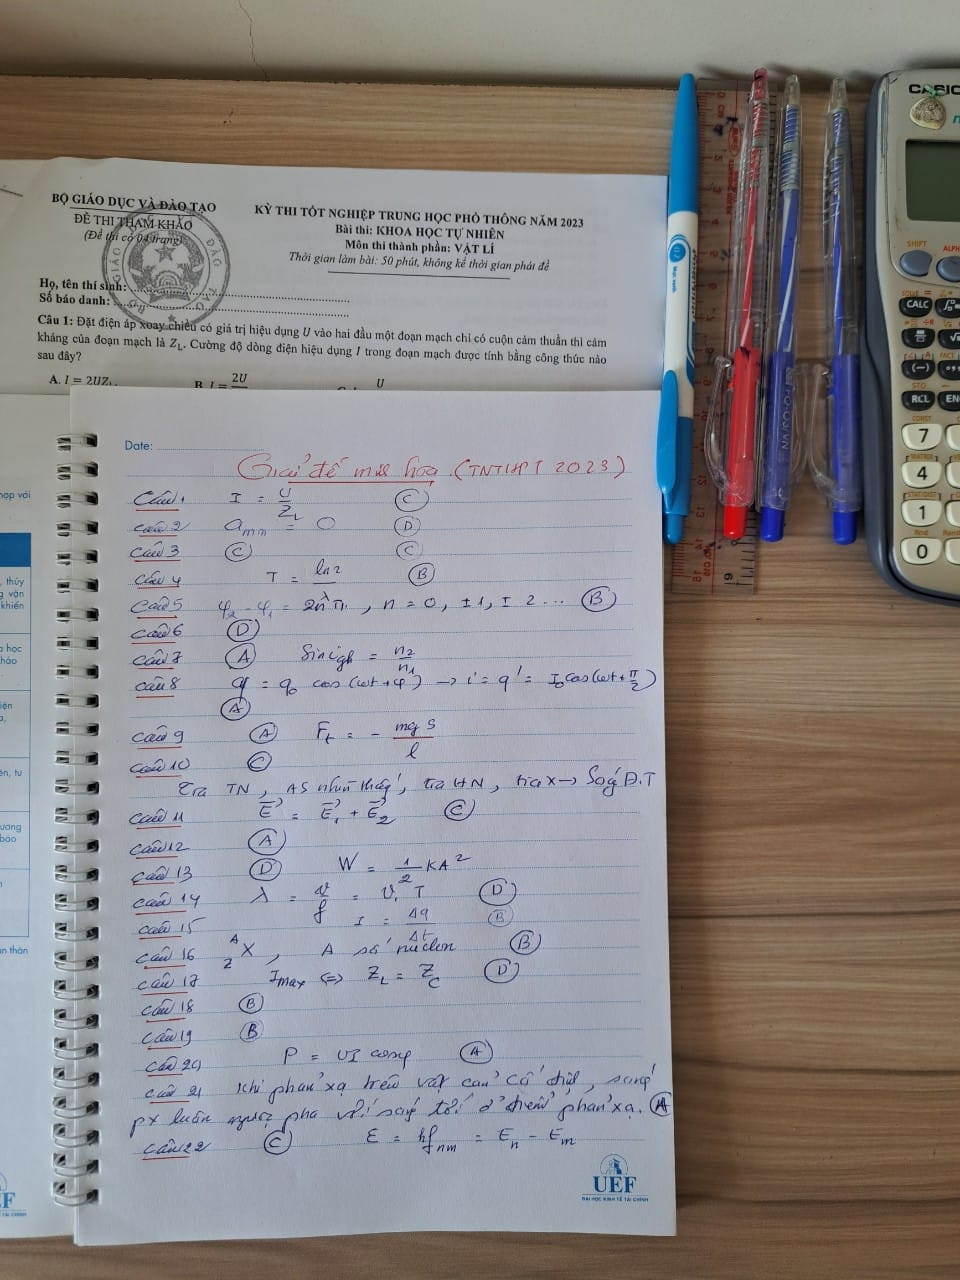 BỘ GIÁO DỤC VÀ ĐÀO TẠO
ĐỀ THI THAM KHẢO
(Đề thi có 04 trang)
KỲ THI TỐT NGHIỆP TRUNG HỌC PHỔ THÔNG NĂM 2023
Bài thi: KHOA HỌC TỰ NHIÊN
Môn thi thành phần: VẬT LÍ
Thời gian làm bài: 50 phút, không kể thời gian phát đề
Họ, tên thí sinh:
Số báo danh:
Câu 1: Đặt điện áp xoay chiều có giá trị hiệu dụng U vào hai đầu một đoạn mạch chỉ có cuộn cảm thuần thì cảm
kháng của đoạn mạch là Z_L. Cường độ dòng điện hiệu dụng I trong đoạn mạch được tính bằng công thức nào
sau đây?
A. I = 2UZ_L. B. I = 2U U
Date:
Giải đề minh họa (TNTHPT 2023)
Câu 1 I = U/Z_L C
Câu 2 a_mn = 0 D
Câu 3 C C
Câu 4 T = ln2 B
Câu 5 φ2 - φ1 = 2nπ, n = 0, ±1, ±2 ... B
Câu 6 D
Câu 7 A Sin i_gh = n2/n1
Câu 8 q = q0 cos(ωt+φ) → i = q' = I0 cos(ωt+π/2)
A
Câu 9 A Ft = - mgs/l
Câu 10 C
Tia TN, AS nhìn thấy, tia HN, tia X → Sóng Đ.T
Câu 11 E = E1 + E2 C
Câu 12 A
Câu 13 D W = 1/2 KA²
Câu 14 λ = v/f = v.T D
Câu 15 I = Δq/Δt B
Câu 16 A/Z X, A số nuclon B
Câu 17 I max ⇔ Z_L = Z_C D
Câu 18 B
Câu 19 B
Câu 20 P = UI cosφ A
Câu 21 Khi phản xạ trên vật cản cố định, sóng
px luôn ngược pha với sóng tới ở điểm phản xạ. A
Câu 22 C E = hf_nm = E_n - E_m
UEF
ĐẠI HỌC KINH TẾ TÀI CHÍNH
CASIO
SHIFT
ALPH
CALC
RCL
EN
(-)
STO
CONST
7
4
1
0
hợp với
, thủy
g vận
khiến
a học
ên, tư
ương
bảo
n thân
UEF